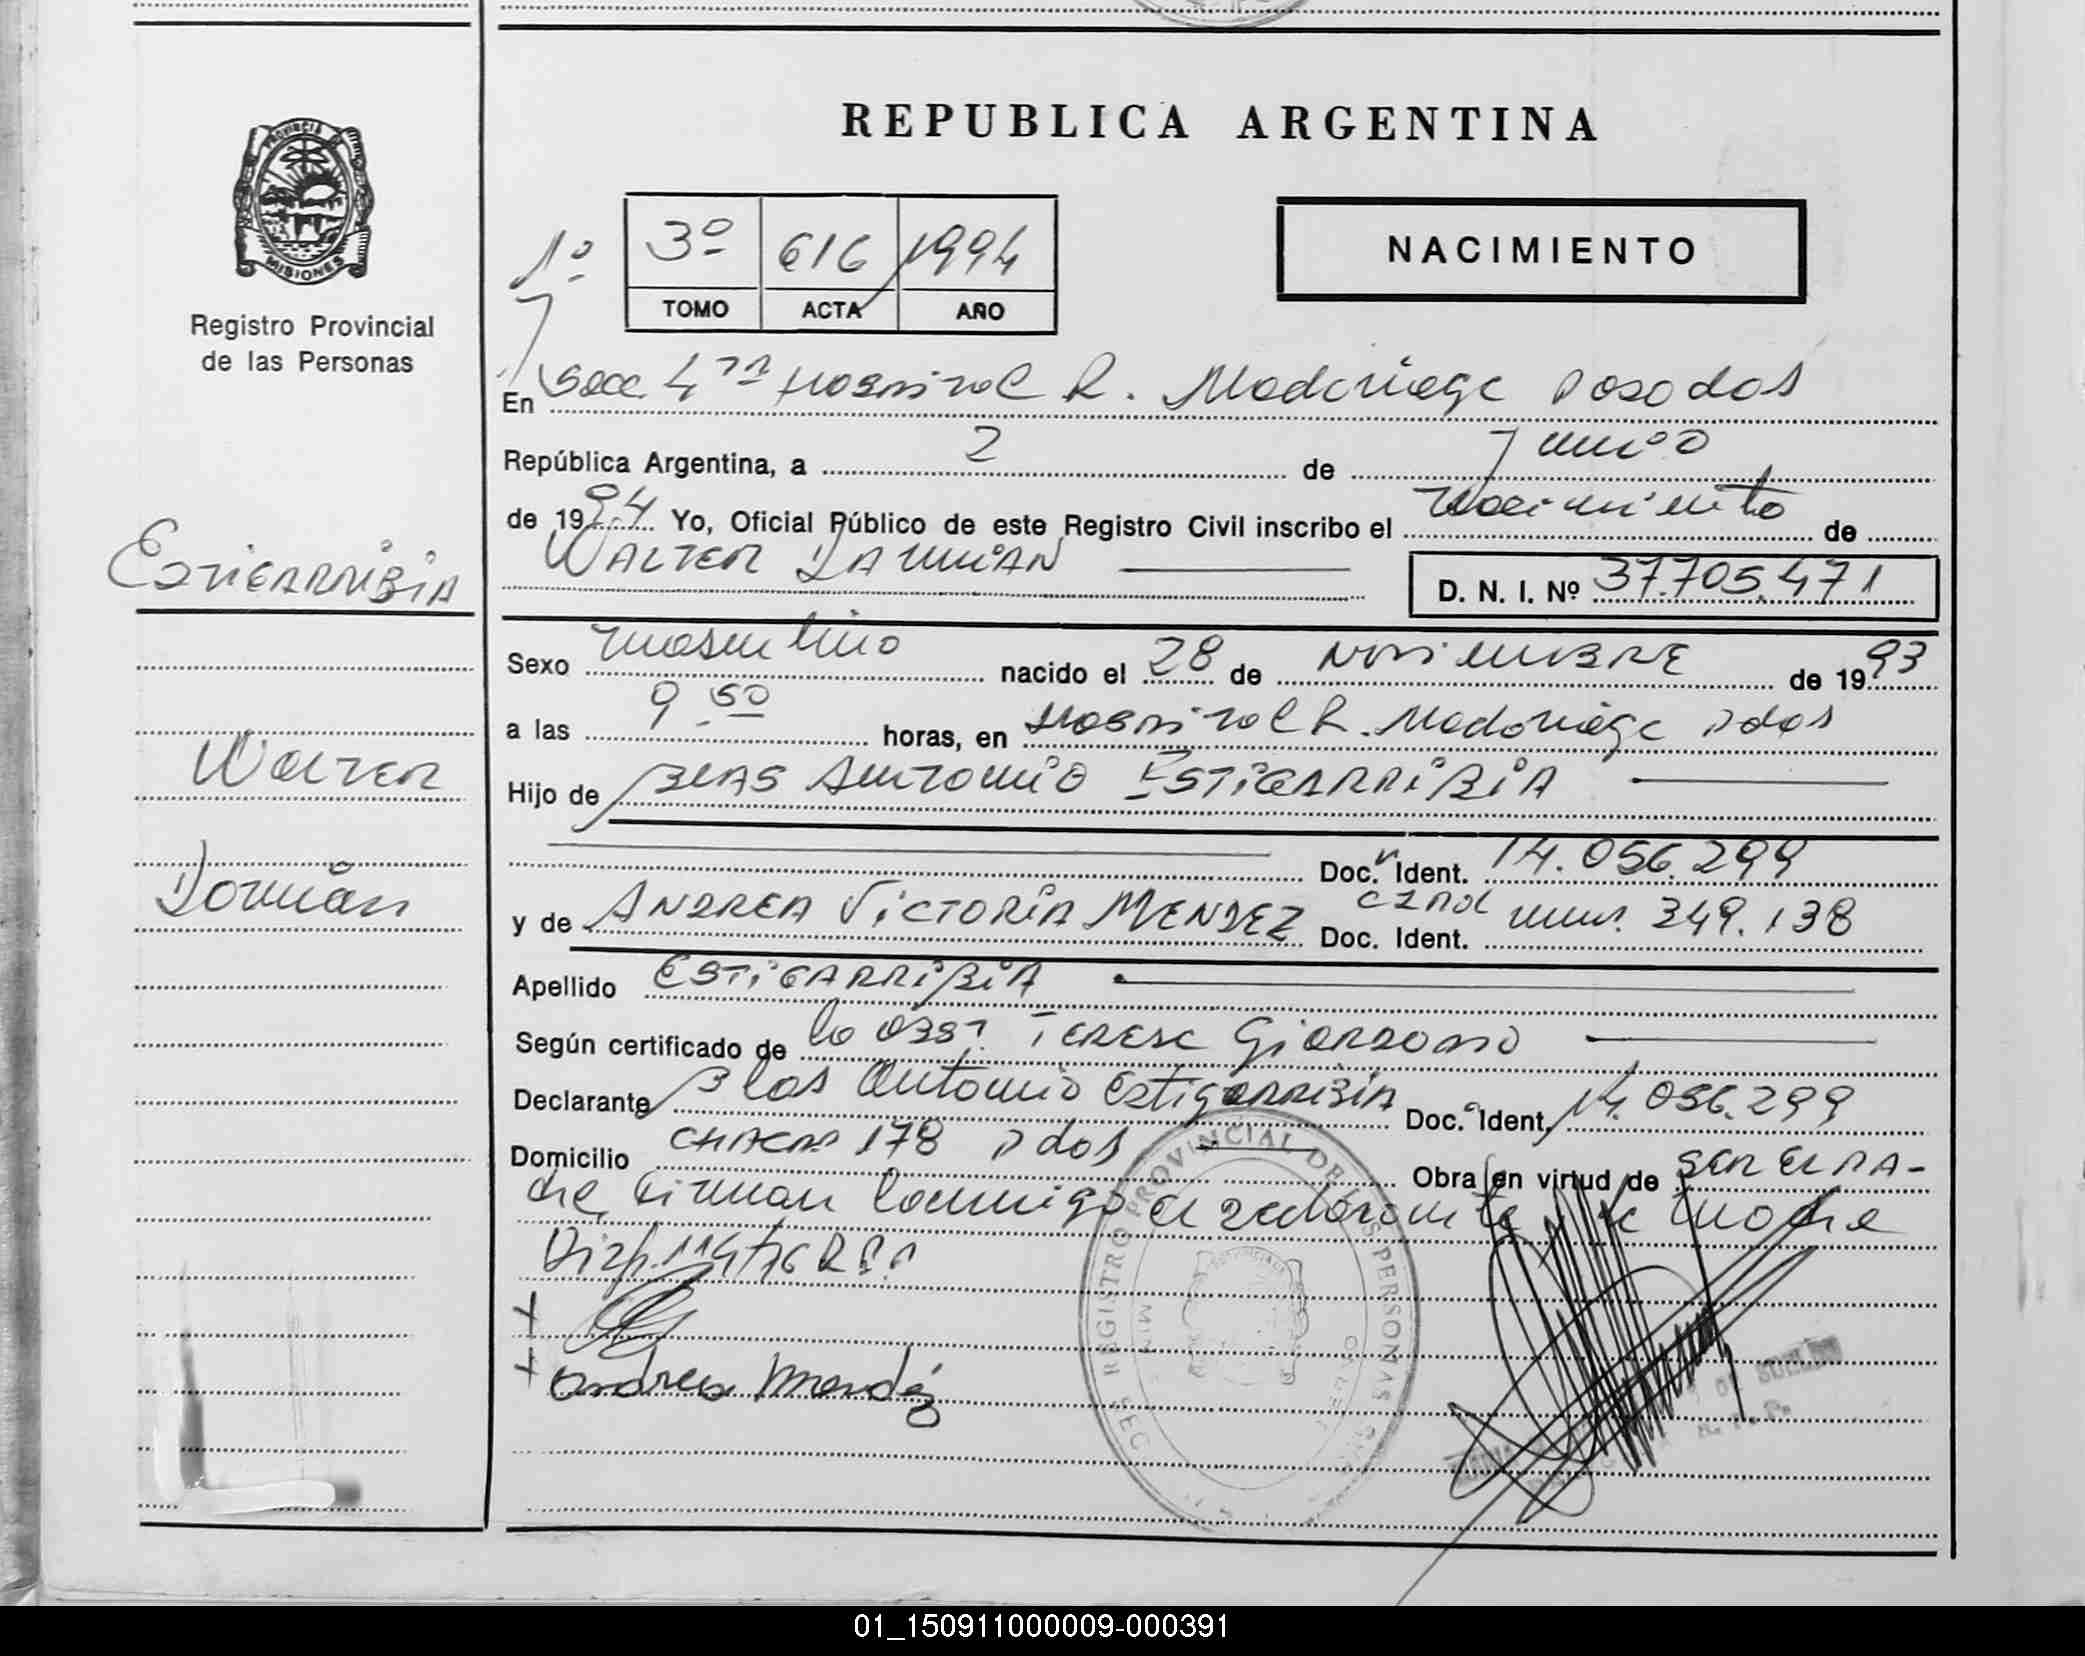 REPUBLICA ARGENTINA
PROVINCIA
MISIONES
Registro Provincial
de las Personas
1º
3º 616 1994
TOMO ACTA AÑO
NACIMIENTO
En Secc. 4ta Hospital R. Madariaga Posadas
República Argentina, a 2 de Junio
de 1994 Yo, Oficial Público de este Registro Civil inscribo el Nacimiento de
WALTER DAMIAN
D. N. I. Nº 37.705.471
Estigarribia
Walter
Damián
Sexo masculino nacido el 28 de Noviembre de 1993
a las 9.50 horas, en Hospital R. Madariaga Pdas
Hijo de BLAS Antonio ESTIGARRIBIA
Doc. Ident. 14.056.299
y de ANDREA VICTORIA MENDEZ Doc. Ident. 349.138
Apellido ESTIGARRIBIA
Según certificado de la Obst. Teresa Giordano
Declarante Blas Antonio Estigarribia Doc. Ident. 14.056.299
Domicilio CHACRA 178 Pdas Obra en virtud de SER EL PA-
dre, Firman conmigo el declarante y la madre
Disp. 114/76
Andrea Mendez
REGISTRO PROVINCIAL DE LAS PERSONAS
01_150911000009-000391